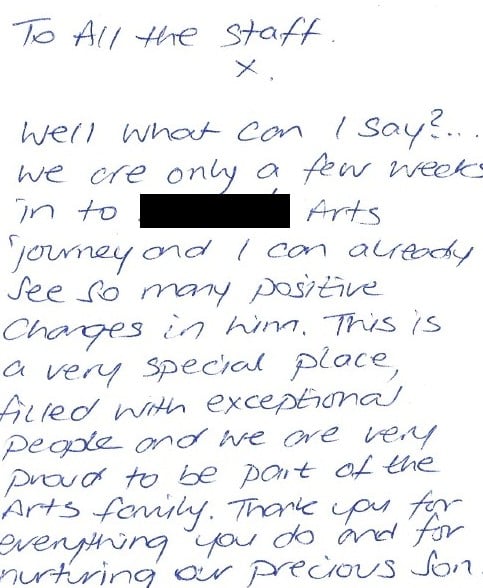 To All the Staff.
x.
Well what can I say?...
we are only a few weeks
in to Arts
journey and I can already
see so many positive
changes in him. This is
a very special place,
filled with exceptional
people and we are very
proud to be part of the
Arts family. Thank you for
everything you do and for
nurturing our precious son.